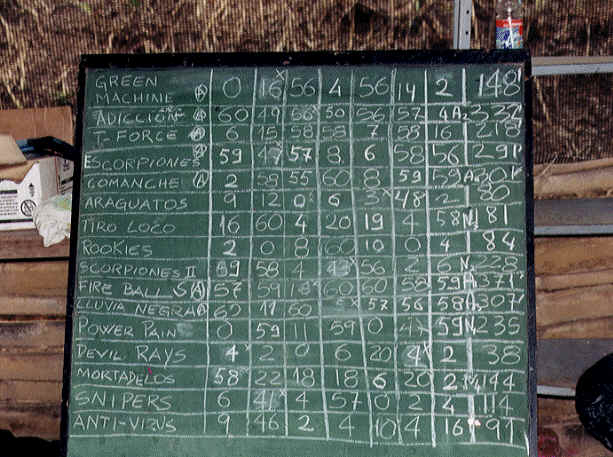 GREEN MACHINE (A) 0 16x 56 4 56 14 2 148
ADICCION (A) 60 49 56x 50 56 57 4 A2 332
T-FORCE (A) 6 15 58 58 7 58 16 218
ESCORPIONES (A) 59 47 57 8 6 58 56 291
COMANCHE (A) 2 58 55 60 8 59 59 A 301
ARAGUATOS 9 12 0x 6 3x 48 2 80
TIRO LOCO 16 60 4 20 19 4 58 N 181
ROOKIES 2 0 8 60 10 0 4 84
SCORPIONES II 59 58 4 43 56 2 6 N 228
FIRE BALLS (A) 57 59 18x 60 60 58 59 A 371
LLUVIA NEGRA (A) 60 11 60 5x 57 56 58 A 307
POWER PAIN 0 59 11 59 0 47 59 N 235
DEVIL RAYS 4x 2 0 6 20 4x 2 38
MORTADELOS 58x 22 18 18 6 20 2 144
SNIPERS 6 41x 4 57 0 2 4 114
ANTI-VIRUS 9 46 2 4 10 4 16 91